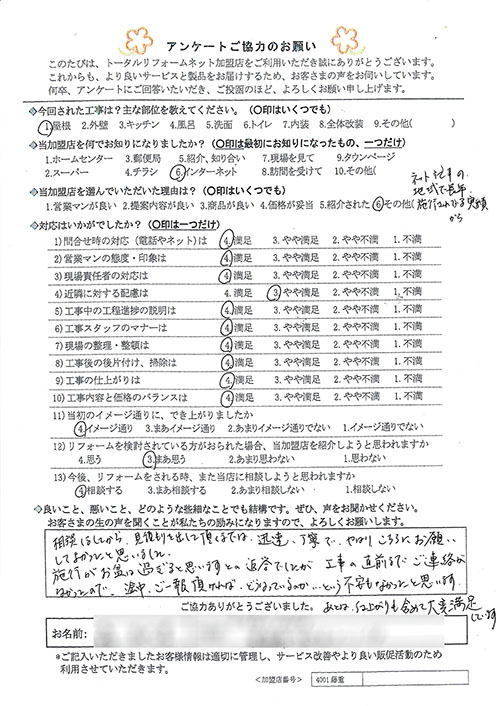 アンケートご協力のお願い
このたびは、トータルリフォームネット加盟店をご利用いただき誠にありがとうございます。
これからも、より良いサービスと製品をお届けするため、お客さまの声をお伺いしています。
何卒、アンケートにご回答いただき、ご投函のほど、よろしくお願い申し上げます。
◆今回された工事は？主な部位を教えてください。（〇印はいくつでも）
1.屋根 2.外壁 3.キッチン 4.風呂 5.洗面 6.トイレ 7.内装 8.全体改装 9.その他( )
◆当加盟店を何でお知りになりましたか？（〇印は最初にお知りになったもの、一つだけ）
1.ホームセンター 3.郵便局 5.紹介、知り合い 7.現場を見て 9.タウンページ
2.スーパー 4.チラシ 6.インターネット 8.訪問を受けて 10.その他( )
◆当加盟店を選んでいただいた理由は？（〇印はいくつでも）
1.営業マンが良い 2.提案内容が良い 3.商品が良い 4.価格が妥当 5.紹介された 6.その他(
ネット記事の
地域で長年
施行されている実績
から
◆対応はいかがでしたか？（〇印は一つだけ）
1)問合せ時の対応（電話やネット）は 4.満足 3.やや満足 2.やや不満 1.不満
2)営業マンの態度・印象は 4.満足 3.やや満足 2.やや不満 1.不満
3)現場責任者の対応は 4.満足 3.やや満足 2.やや不満 1.不満
4)近隣に対する配慮は 4.満足 3.やや満足 2.やや不満 1.不満
5)工事中の工程進捗の説明は 4.満足 3.やや満足 2.やや不満 1.不満
6)工事スタッフのマナーは 4.満足 3.やや満足 2.やや不満 1.不満
7)現場の整理・整頓は 4.満足 3.やや満足 2.やや不満 1.不満
8)工事後の後片付け、掃除は 4.満足 3.やや満足 2.やや不満 1.不満
9)工事の仕上がりは 4.満足 3.やや満足 2.やや不満 1.不満
10)工事内容と価格のバランスは 4.満足 3.やや満足 2.やや不満 1.不満
11)当初のイメージ通りに、でき上がりましたか
4.イメージ通り 3.まあイメージ通り 2.あまりイメージ通りでない 1.イメージ通りでない
12)リフォームを検討されている方がおられた場合、当加盟店を紹介しようと思われますか
4.思う 3.まあ思う 2.あまり思わない 1.思わない
13)今後、リフォームをされる時、また当店に相談しようと思われますか
4.相談する 3.まあ相談する 2.あまり相談しない 1.相談しない
◆良いこと、悪いこと、どのような些細なことでも結構です。ぜひ、声をお聞かせください。
お客さまの生の声を聞くことが私たちの励みになりますので、よろしくお願いします。
相談してから、見積りを出して頂くまでは、迅速、丁寧で、やはりこちらにお願い
してよかったと思いました。
施行がお盆は過ぎると思いますとの返答でしたが 工事の直前までご連絡が
なかったので、途中、ご一報頂ければ、どうなっているのか…という不安もなかったと思います。
あとは、仕上がりも含めて大変満足
しています
ご協力ありがとうございました。
お名前:
*ご記入いただきましたお客様情報は適切に管理し、サービス改善やより良い販促活動のため
利用させていただきます。
＜加盟店番号＞ 4001藤重